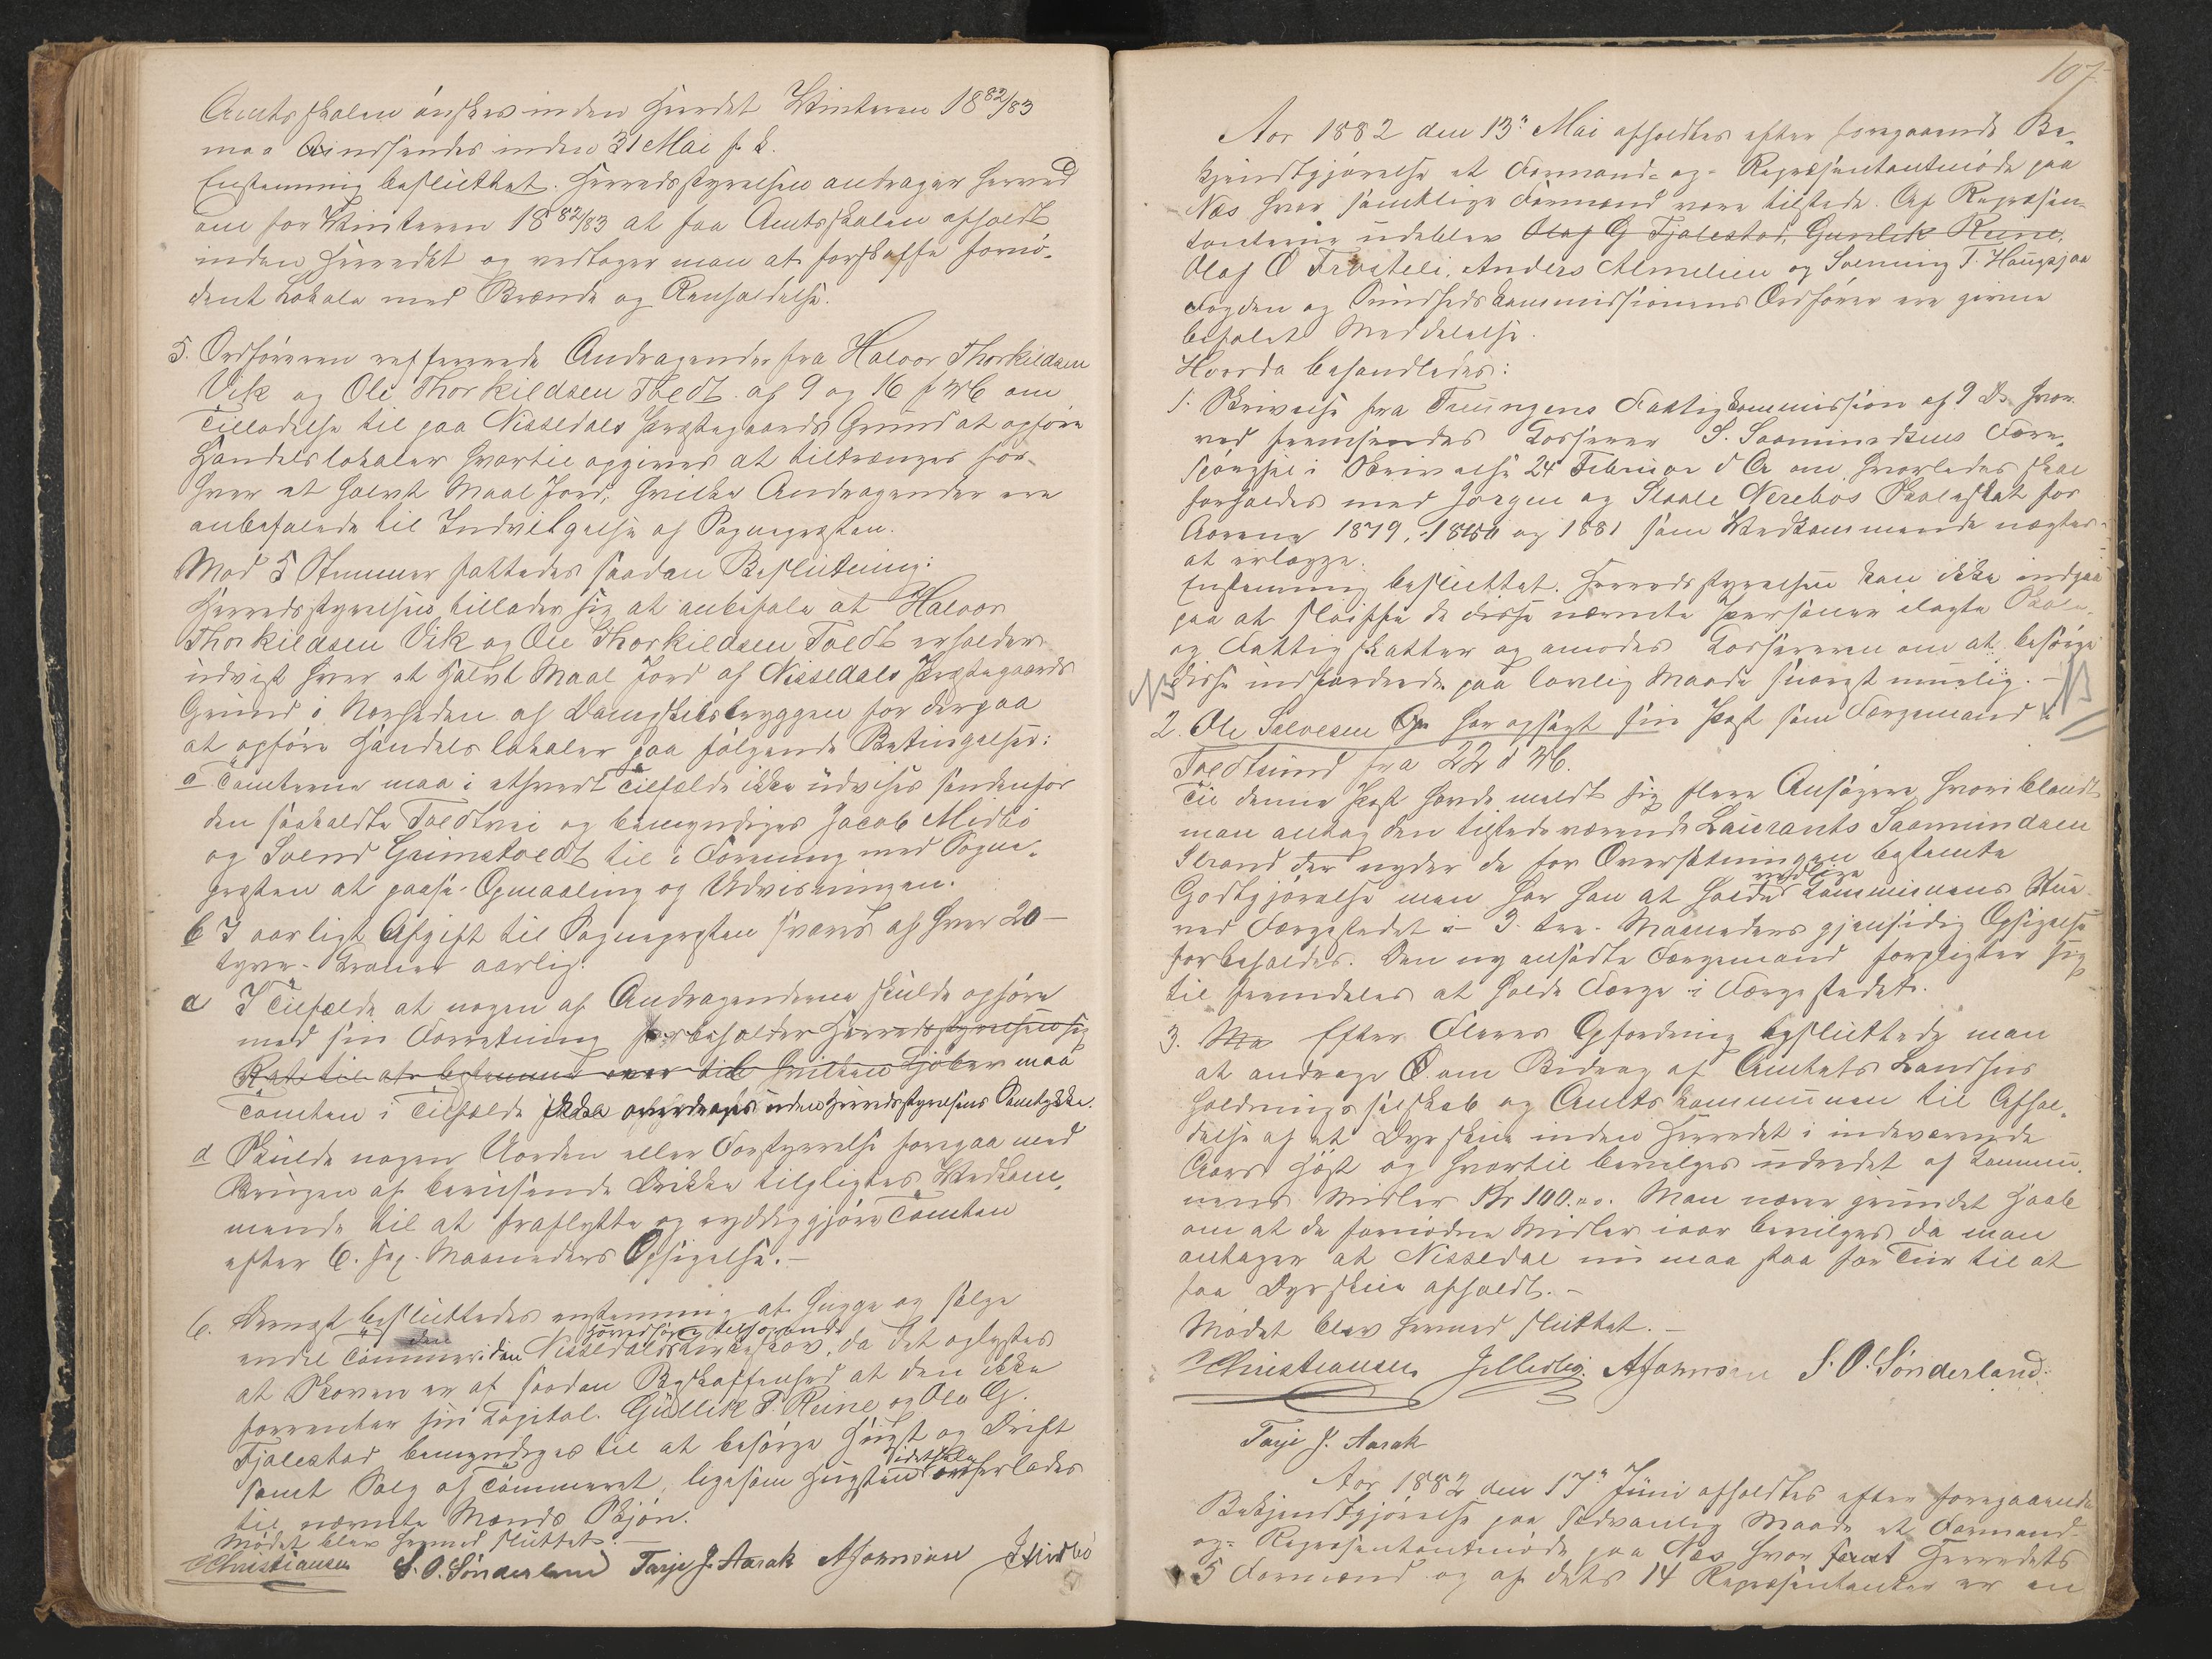 Amtsskolen ønskes inden Herredet Vinteren 1882/83
maa indsendes inden 31 Mai f. k.
Enstemmig besluttet. Herredsstyrelsen andrager herved
om for Vinteren 1882/83 at faa Amtsskolen afholdt
inden Herredet og vedtager man at forskaffe fornø-
dent Lokale med Brænde og Renholdelse.
5. Ordføreren refererede Andragender fra Halvor Thorkildsen
Vik og Ole Thorkildsen Tvedt af 9 og 16 f. M. om
Tilladelse til paa Nissedals Præstegaards Grund at opføre
Handelslokaler hvortil opgives at tiltrænges for
hver et halvt Maal Jord, hvilke Andragender ere
anbefalede til Indvilgelse af Sognepræsten.
Mod 5 Stemmer fattedes saadan Beslutning:
Herredsstyrelsen tillader sig at anbefale at Halvor
Thorkildsen Vik og Ole Thorkildsen Tvedt erholder
udvist hver et halvt Maal Jord af Nissedals Præstegaards
Grund i Nærheden af Dampskibsbryggen for derpaa
at opføre Handelslokaler paa følgende Betingelser:
a Tomterne maa i ethvert Tilfælde ikke udvises søndenfor
den saakaldte Tvedtvei og bemyndiges Jacob Midbø
og Svend Grimstvedt til i Forening med Sogne-
præsten at paase Opmaaling og Udvisningen.
b I aarligt Afgift til Sognepræsten svares af hver 20 –
tyve – Kroner aarlig.
c I Tilfælde at nogen af Andragenderne skulde ophøre
med sin Forretning forbeholder Herredsstyrelsen sig
Ret til at bestemme over til hvilken Kjøber maa
Tomten i Tilfælde ikke overdrages uden Herredsstyrelsens Samtykke.
d Skulde nogen Uorden eller Forstyrrelse foregaa med
Brugen af berusende Drikke tilpligtes Vedkom-
mende til at fraflytte og ryddiggjøre Tomten
efter 6. sex. Maaneders Opsigelse. –
6. Dernæst besluttedes enstemmig at hugge og sælge
Herredsstyrelsen tilhørende
endel Tømmer i den Nissedals Kirkeskov, da det oplystes
at Skoven er af saadan Beskaffenhed at den ikke
forrenter sin Kapital. Gullik T. Reine og Ole G.
Fjalestad bemyndiges til at besørge Hugst og Drift
samt Salg af Tømmeret, ligesom Hugsten idethele overlades
til nævnte Mænds Skjøn.
Mødet blev hermed sluttet. –
Christiansen S. O. Sønderland Tarje J. Aasak A Johnsen J Midbø
107
Aar 1882 den 13de Mai afholdtes efter foregaaende Be-
kjendtgjørelse et Formand- og Repræsentantmøde paa
Næs hvor samtlige Formænd vare tilstede. Af Repræsen-
tanterne udeblev Olaf G Fjalestad, Gunlik Reine,
Olaf O Treiteli, Anders Almelien og Svenung T. Haugsjaa
Fogden og Sundhedskommissionens Ordfører ere givne
befalet Meddelelse.
Hvorda behandledes:
1. Skrivelse fra Treungens Fattigkommission af 9 Ds. hvor-
ved fremsendes Kasserer S. Saamundsens Fore-
spørgsel i Skrivelse 24 Februar d. A. om hvorledes skal
forholdes med Jørgen og Staale Nerebøs Skoleskat for
Aarene 1879, 1880 og 1881 som Vedkommende nægter
at erlægge.
Enstemmig besluttet. Herredsstyrelsen kan ikke indgaa
paa at sløiffe de disse nævnte Personer ilagte Skole-
og Fattigskatter og anmodes Kassereren om at besørge
disse indfordrede paa lovlig Maade snarest muelig. –
2. Ole Salvesen har opsagt sin Post som Færgemand i
Tvedtsund fra 22 d. M.
Til denne Post havde meldt sig flere Ansøgere hvoriblandt
man antog den tilstedeværende Laurants Saamundsen
Strand der nyder de for Oversætningen bestemte
Godtgjørelse men har han at holde vedlige Kommunens Stue
ved Færgestedet i 3. tre. Maaneders gjensidig Opsigelse
forbeholdes. Den ny ansatte Færgemand forpligter sig
til fremdeles at holde Færge i Færgestedet.
3. Ma Efter Fleres Opfordring besluttede man
at andrage om Bidrag af Amtets Landhus-
holdningsselskab og Amtskommunen til Afhol-
delse af et Dyrskue inden Herredet i indeværende
Aars Høst og hvortil bevilges udredet af Kommu-
nens Midler Kr 100.00. Man nærer grundet Haab
om at de fornødne Midler iaar bevilges da man
antager at Nissedal nu maa staa for Tur til at
faa Dyrskue afholdt. –
Mødet blev hermed sluttet. –
Christiansen J Midbø. A Johnsen S. O. Sønderland.
Tarje J. Aasak
Aar 1882 den 17de Juni afholdtes efter foregaaende
Bekjendtgjørelse paa sædvanlig Maade et Formand-
og Repræsentantmøde paa Næs hvor samt Herredets
5 Formænd og af dets 14 Repræsentanter er en